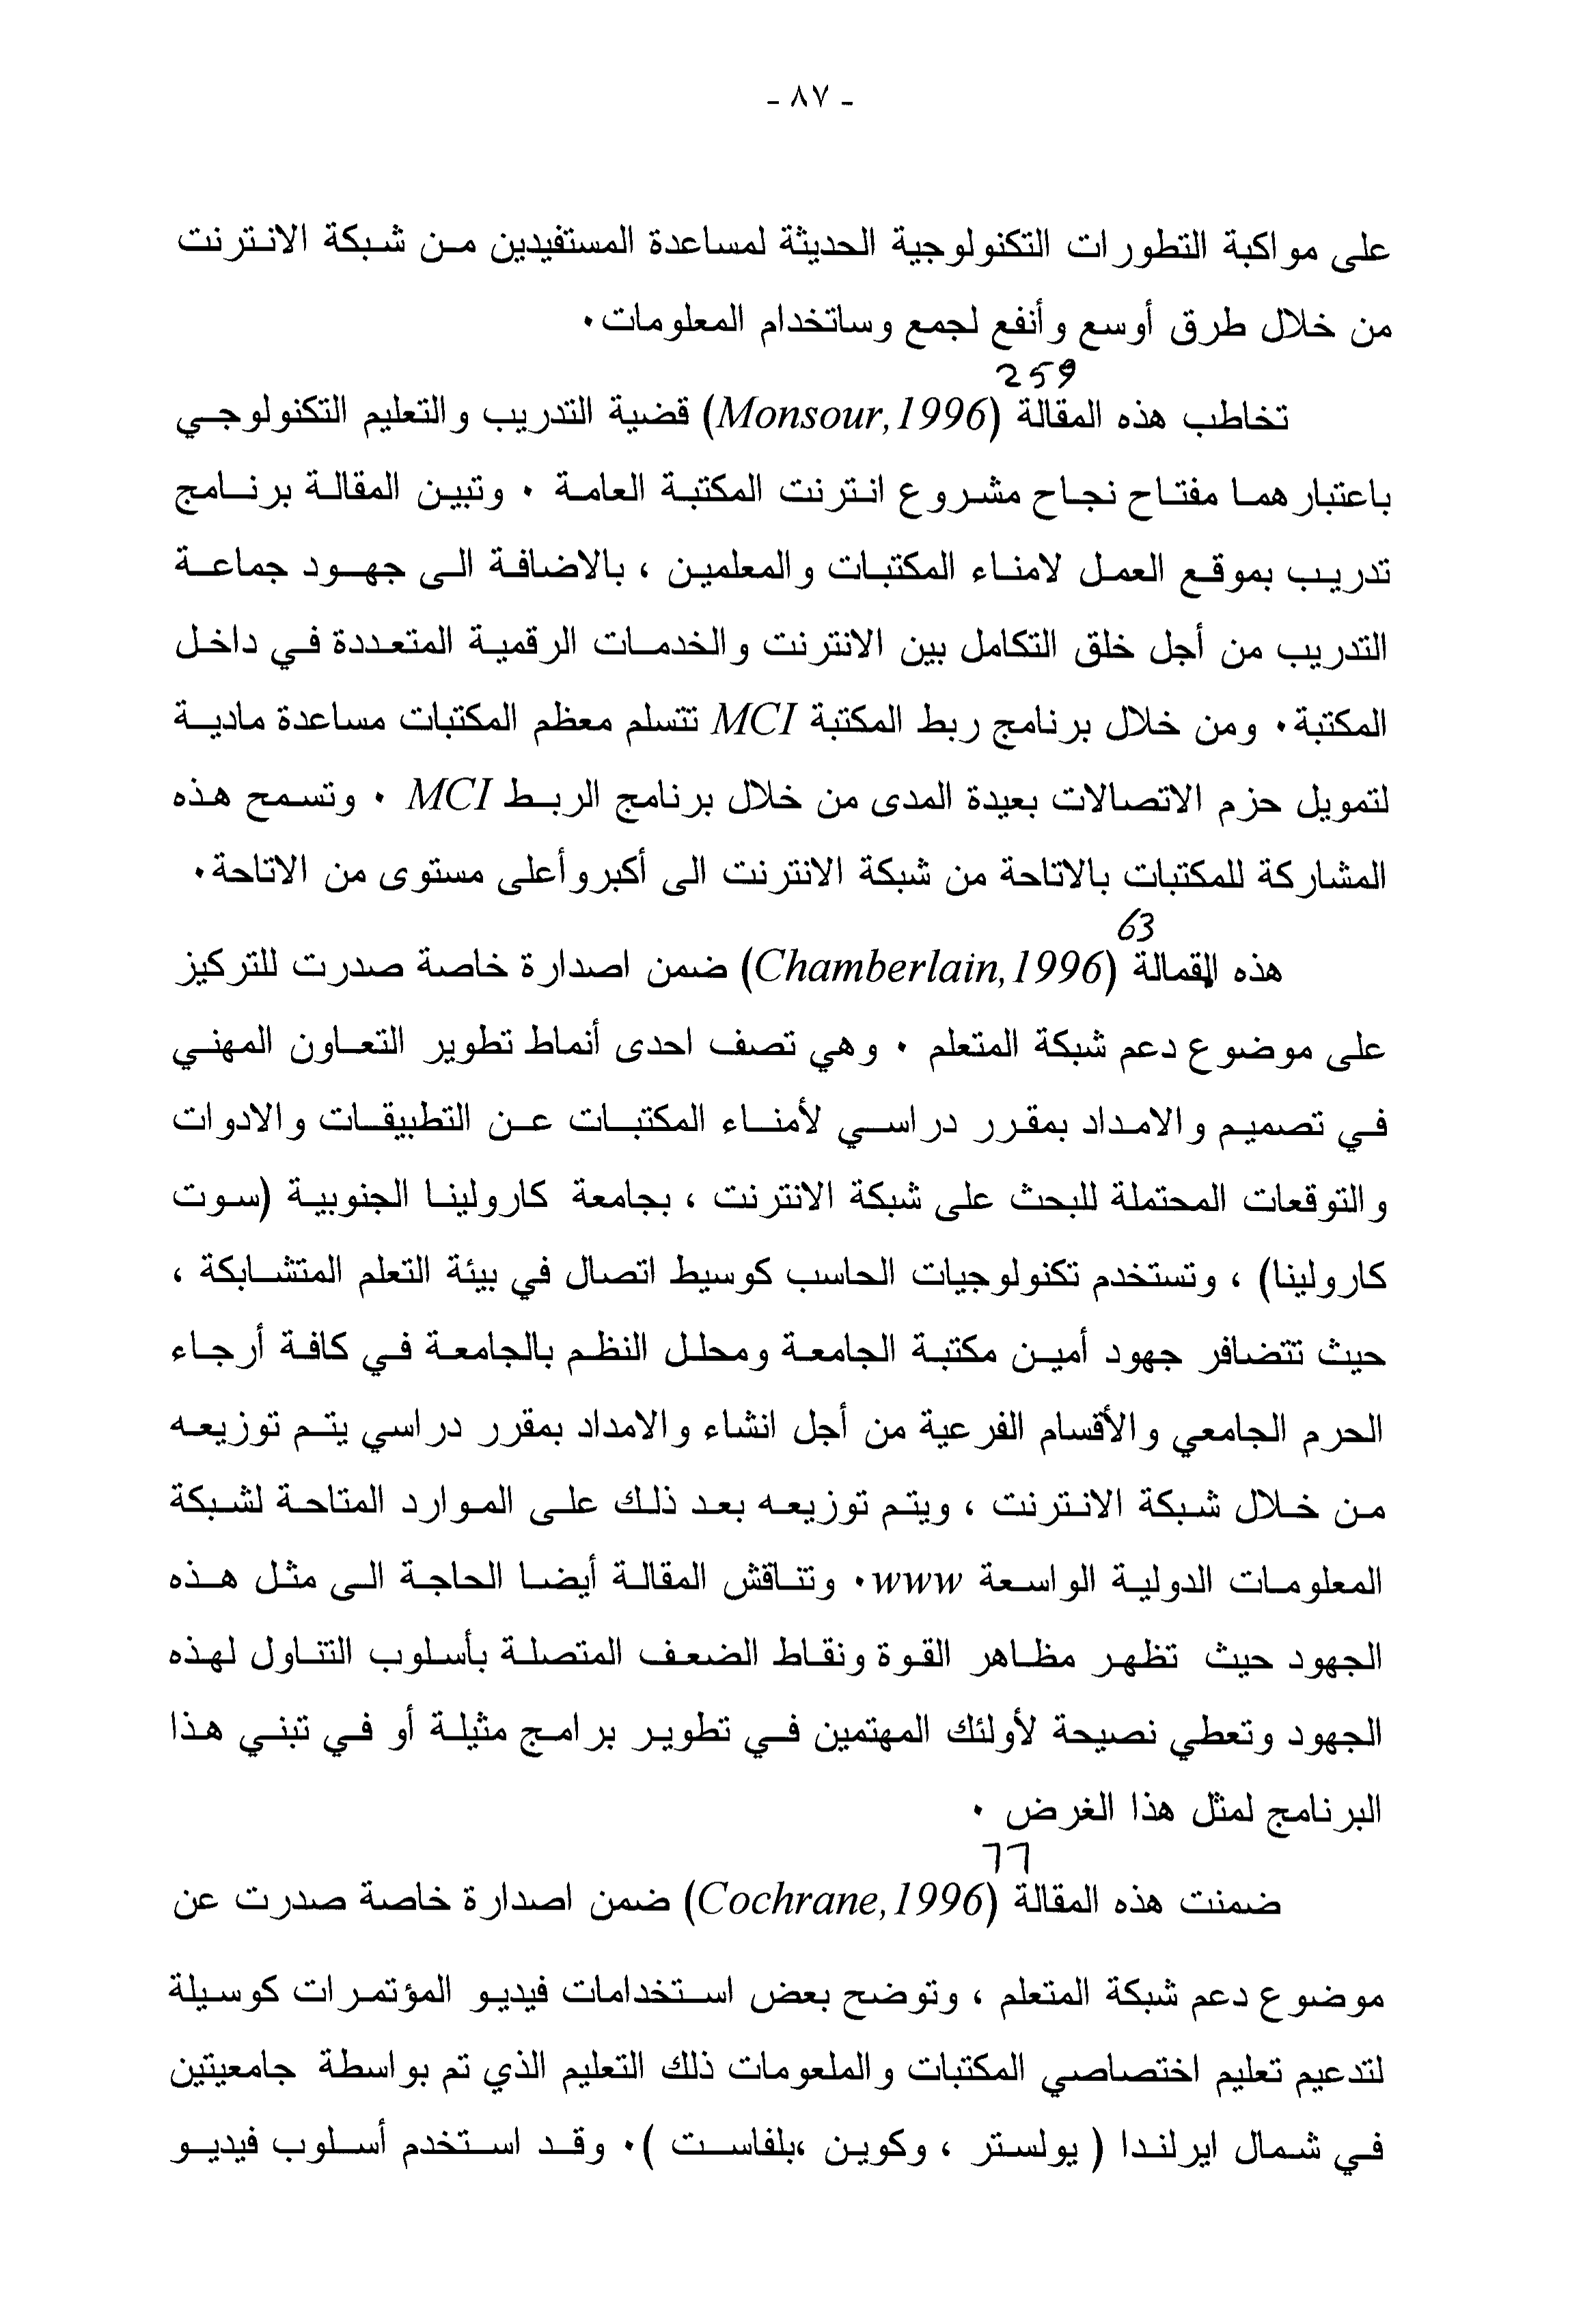 - ٨٧ -
على مواكبة التطورات التكنولوجية الحديثة لمساعدة المستفيدين من شبكة الانترنت
من خلال طرق أوسع وأنفع لجمع وساتخدام المعلومات٠
259
تخاطب هذه المقالة (Monsour,1996) قضية التدريب والتعليم التكنولوجي
باعتبارهما مفتاح نجاح مشروع انترنت المكتبة العامة ٠ وتبين المقالة برنامج
تدريب بموقع العمل لامناء المكتبات والمعلمين ، بالاضافة الى جهود جماعة
التدريب من أجل خلق التكامل بين الانترنت والخدمات الرقمية المتعددة في داخل
المكتبة٠ ومن خلال برنامج ربط المكتبة MCI تتسلم معظم المكتبات مساعدة مادية
لتمويل حزم الاتصالات بعيدة المدى من خلال برنامج الربط MCI ٠ وتسمح هذه
المشاركة للمكتبات بالاتاحة من شبكة الانترنت الى أكبروأعلى مستوى من الاتاحة٠
63
هذه القمالة (Chamberlain,1996) ضمن اصدارة خاصة صدرت للتركيز
على موضوع دعم شبكة المتعلم ٠ وهي تصف احدى أنماط تطوير التعاون المهني
في تصميم والامداد بمقرر دراسي لأمناء المكتبات عن التطبيقات والادوات
والتوقعات المحتملة للبحث على شبكة الانترنت ، بجامعة كارولينا الجنوبية (سوت
كارولينا) ، وتستخدم تكنولوجيات الحاسب كوسيط اتصال في بيئة التعلم المتشابكة ،
حيث تتضافر جهود أمين مكتبة الجامعة ومحلل النظم بالجامعة في كافة أرجاء
الحرم الجامعي والأقسام الفرعية من أجل انشاء والامداد بمقرر دراسي يتم توزيعه
من خلال شبكة الانترنت ، ويتم توزيعه بعد ذلك على الموارد المتاحة لشبكة
المعلومات الدولية الواسعة www٠ وتناقش المقالة أيضا الحاجة الى مثل هذه
الجهود حيث تظهر مظاهر القوة ونقاط الضعف المتصلة بأسلوب التناول لهذه
الجهود وتعطي نصيحة لأولئك المهتمين في تطوير برامج مثيلة أو في تبني هذا
البرنامج لمثل هذا الغرض ٠
77
ضمنت هذه المقالة (Cochrane,1996) ضمن اصدارة خاصة صدرت عن
موضوع دعم شبكة المتعلم ، وتوضح بعض استخدامات فيديو المؤتمرات كوسيلة
لتدعيم تعليم اختصاصي المكتبات والملعومات ذلك التعليم الذي تم بواسطة جامعيتين
في شمال ايرلندا ( يولستر ، وكوين ،بلفاست )٠ وقد استخدم أسلوب فيديو